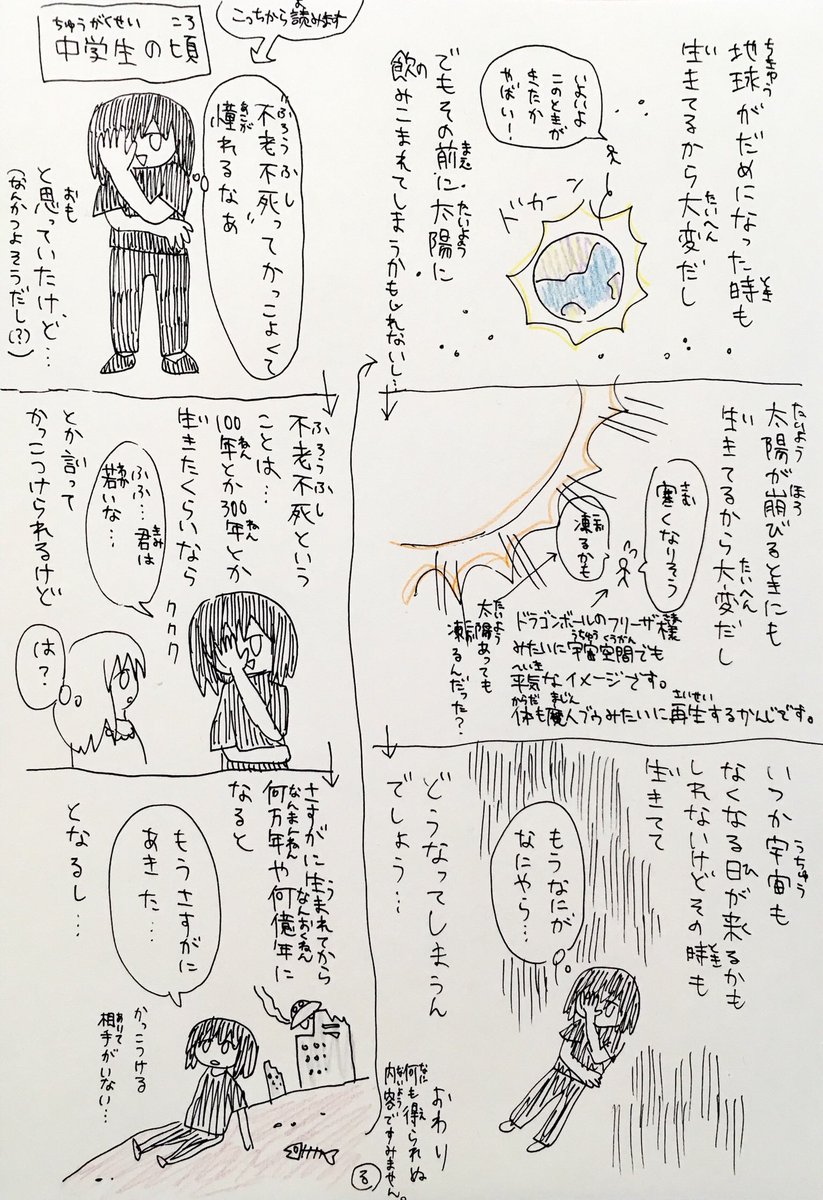 中学生の頃
こっちから読みます
“不老不死”ってかっこよくて
憧れるなぁ
と思っていたけど…
(なんかつよそうだし(?))
不老不死という
ことは…
100年とか300年とか
生きたくらいなら
ふふ…君は
若いな…
ククク
とか言って
かっこつけられるけど
は？
さすがに生まれてから
何万年や何億年に
なると
もうさすがに
あきた…
となるし…
かっこつける
相手がいない…
地球がだめになった時も
生きてるから大変だし
いよいよ
このときが
きたか
やばい！
ドカーン
でもその前に太陽に
飲みこまれてしまうかもしれないし…
太陽が崩びるときにも
生きてるから大変だし
寒くなりそう
凍るかも
太陽あっても
凍るんだった？
ドラゴンボールのフリーザ様
みたいに宇宙空間でも
平気なイメージです。
体も魔人ブゥみたいに再生するかんじです。
いつか宇宙も
なくなる日が来るかも
しれないけどその時も
生きてて
もうなにが
なにやら…
どうなってしまうん
でしょう…
おわり
何も得られぬ
内容ですみません。
る